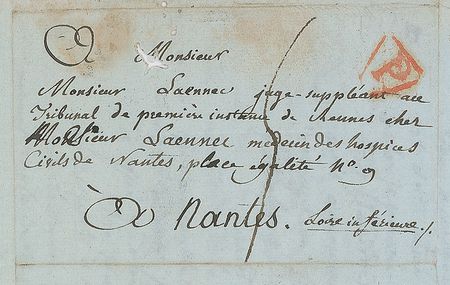 A Monsieur
Monsieur Laennec juge-suppléant au
Tribunal de première instance de Rennes chez
Monsieur Laennec medecin des hospices
Civils de Nantes, place égalité N.° 9
à Nantes. Loire inférieure./.